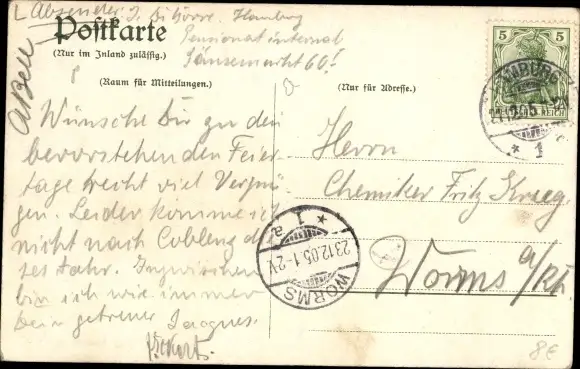 Absender: J. Hamburg
Pensionat international
Gänsemarkt 60!
Postkarte
(Nur im Inland zulässig.)
(Raum für Mitteilungen.)
(Nur für Adresse.)
5 5
HAMBURG
1
DEUTSCHES REICH
Wünsche Dir zu den
bevorstehenden Feier-
tage recht viel Vergnü-
gen. Leider komme ich
nicht nach Coblenz d
ses Jahr. Inzwischen
bin ich wie immer
Dein getreuer Jacques.
Herrn
Chemiker Fritz Krieg.
Worms a/Rh.
WORMS
23.12.05.1-2V.
1
a
8€